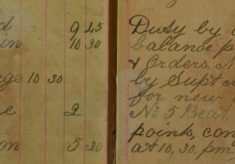 d 9 45
on 10 30
ge 10 30
e 2
on 5 30
Duty by
balance p
& Orders.
by Supt
for new
No. 5 Beat
points, con
at 10.30. pm